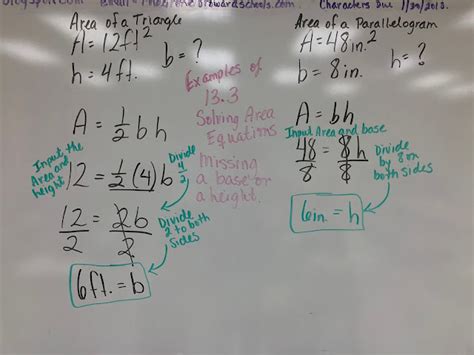 Characters Due 1/30/2013.
Area of a Triangle
A = 12ft²
h = 4ft.
b = ?
A = 1/2 b h
Input the Area and height
12 = 1/2 (4) b
Divide 4/2
12/2 = 2b/2
Divide 2 to both sides
6ft. = b
Examples of
13.3
Solving Area
Equations
Missing
a base or
a height.
Area of a Parallelogram
A = 48in.²
b = 8in.
h = ?
A = bh
Input Area and base
48/8 = 8h/8
Divide by 8 on both sides
6in. = h